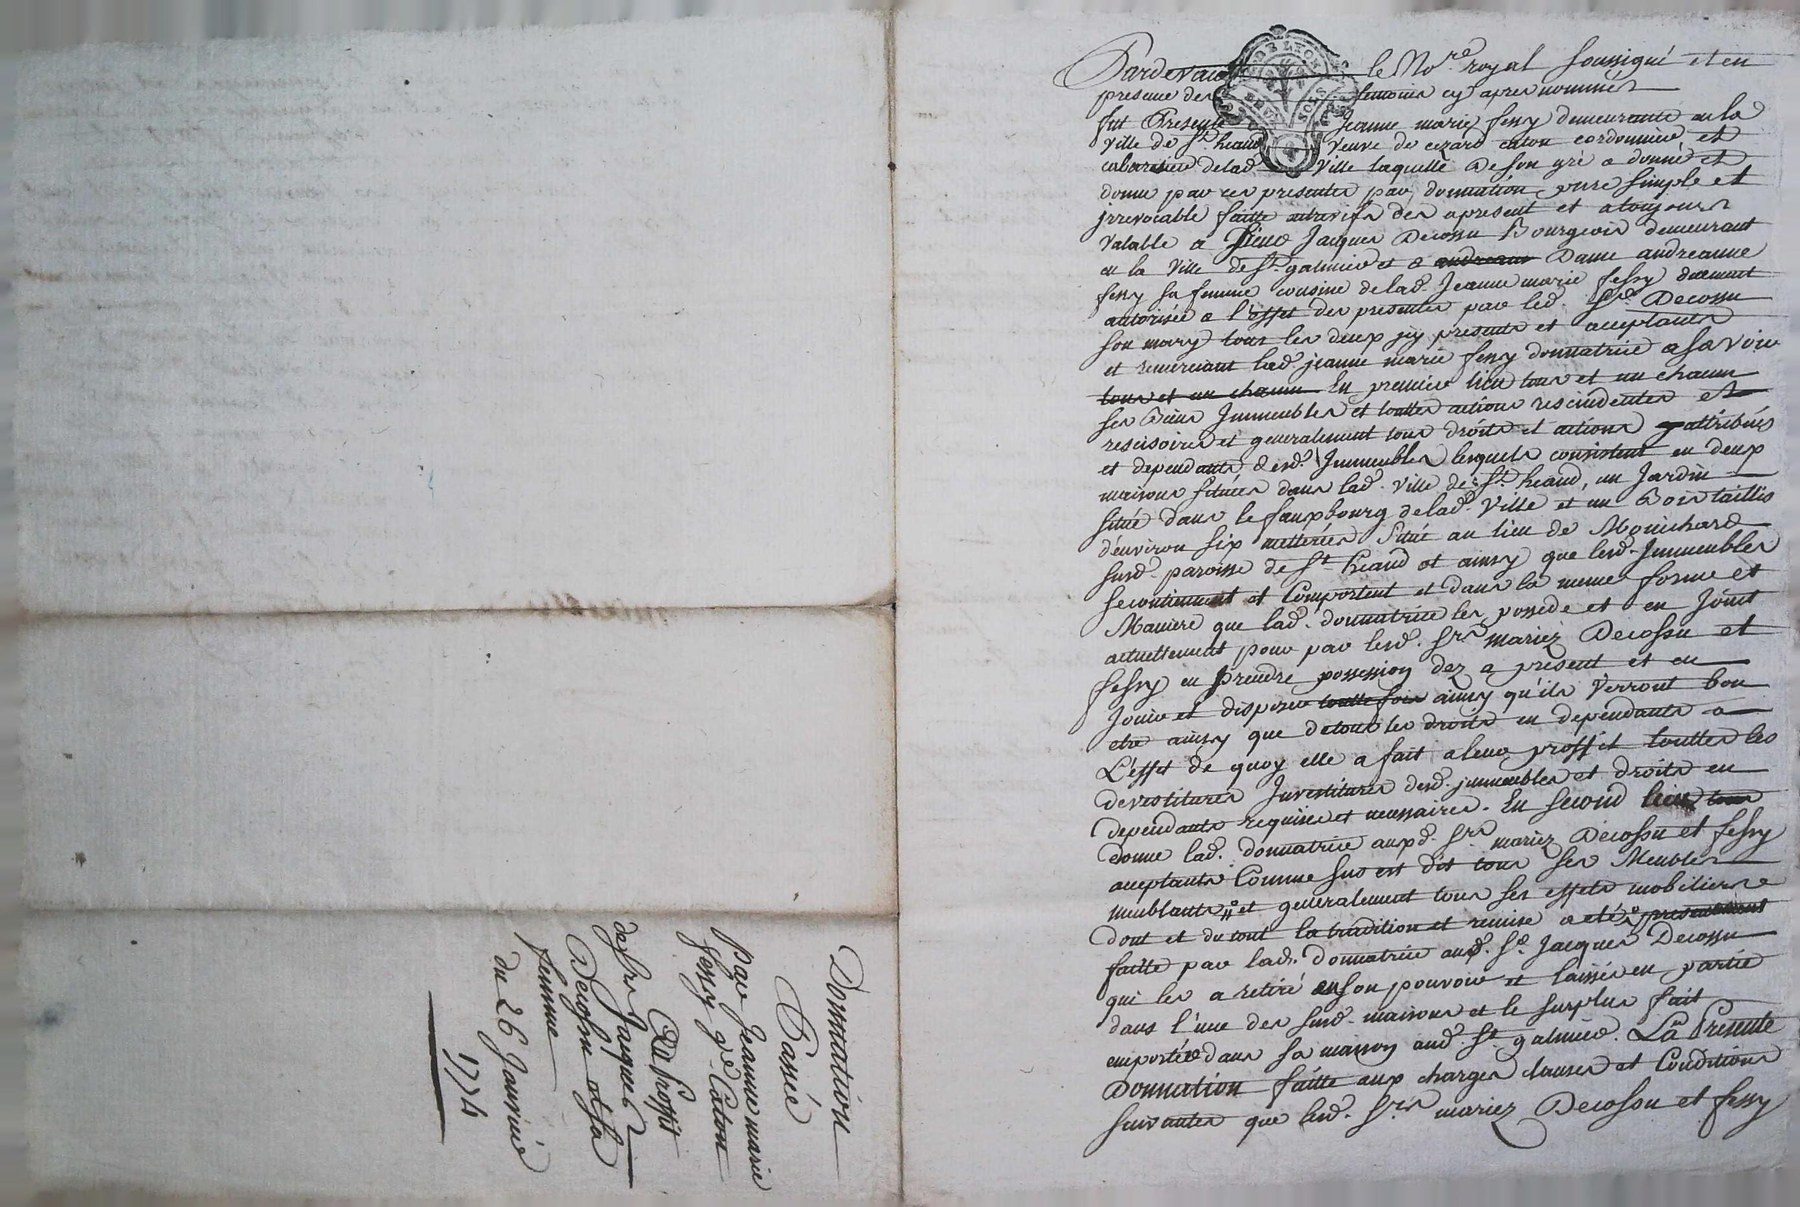 Pardevant le No.re royal soussigné et en
presence des temoins cy apres nommés
fut Presente Jeanne marie fessy demeurante en la
ville de S.t heand veuve de cezard caton cordonnier et
cabaretier delad. Ville laquelle de son gré a donné et
donne par ces presentes par donnation pure simple et
jrrevocable faitte entrevifs des apresent et atoujours
Valable a Sieur Jacques Decossu Bourgeois demeurant
en la Ville de S.t galmier et a Dame andreanne
fessy sa femme cousine delad. Jeanne marie fessy duement
autorisée a l'effet des presentes par led. S.r Decossu
son mary tous les deux jcy presents et acceptants
et remerciant lad. jeanne marie fessy donnatrice asavoir
tous et un chacun En premier lieu tous et un chacun
ses Biens Jmmeubles et touttes actions rescindentes et
rescisoires et generalement tous droits et actions attribués
et dependants desd. Jmmeubles lesquels consistent en deux
maisons situées dans lad. ville de S.t heand, un Jardin
situé dans le fauxbourg delad. Ville et un Bois taillis
d'environ six metterées situé au lieu de Mouichard
susd. paroisse de S.t heand et ainsy que lesd. Jmmeubles
secontiennent et Comportent et dans la meme forme et
Maniere que lad. donnatrice les possede et en Jouit
actuellement pour par lesd. S.rs mariez Decossu et
fessy en prendre possession dez a present et en
Jouir et disposer toutte fois ainsy qu'ils Verront bon
etre ainsy que detous les droits en dependants a
L'effet de quoy elle a fait aleur proffit touttes les
devestitures Jnvestitures desd. jmmeubles et droits en
dependants requises et necessaires. En second lieu tous
donne lad. donnatrice auxd. S.rs mariez Decossu et fessy
acceptants Comme sus est dit tous ses Meubles
meublants et generalement tous ses effets mobiliers
dont et du tout la tradition et remise a eté presentement
faitte par lad. Donnatrice aud. S.r Jacques Decossu
qui les a retiré enson pouvoir et laissés en partie
dans l'une des susd. maisons et le surplus fait
emporter dans sa maison aud. S.t galmier. La Presente
Donnation faitte aux charges clauses et Conditions
suivantes que lesd. S.rs mariez Decossu et fessy
Donnation
Passée
par Jeanne marie
fessy v.e Caton
Au Proffit
de S.r Jacques
Decossu et sa
femme
du 26 Janvier
1774